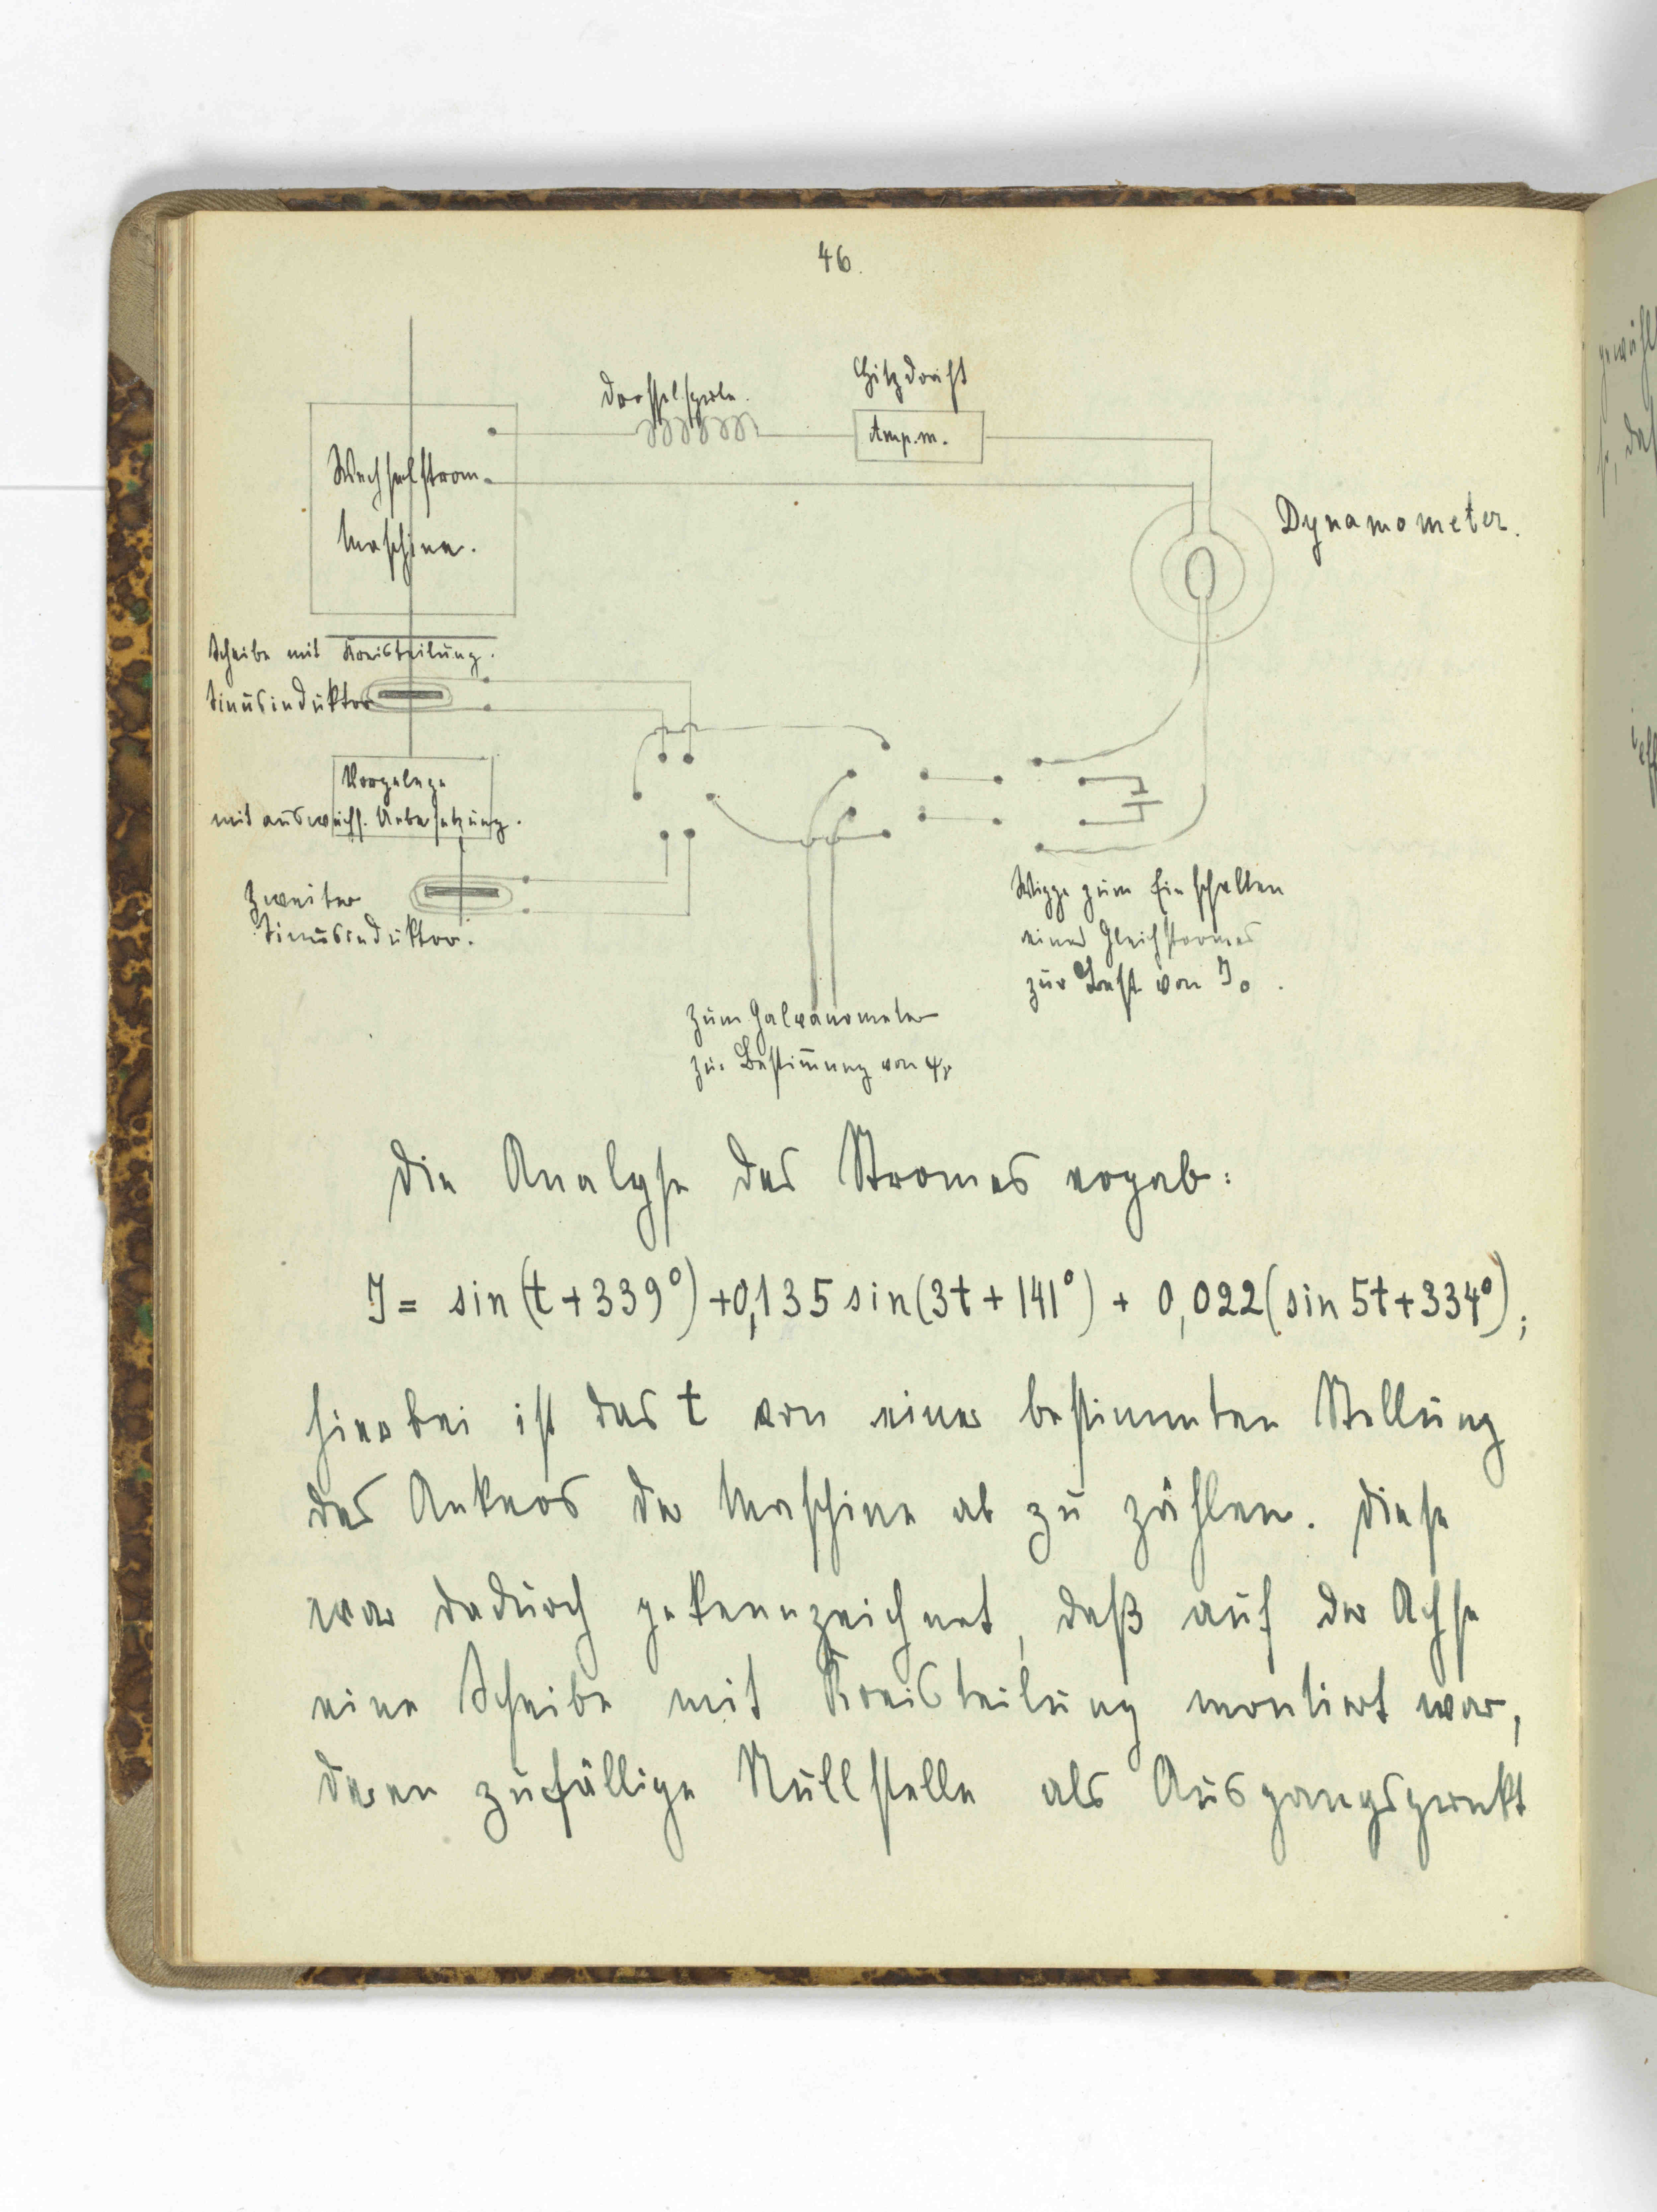 46.
Drosselspule.
Hitzdraht
Amp.m.
Wechselstrom-
Maschine.
Dynamometer.
Scheibe mit Kreisteilung.
Sinusinduktor
Vorgelege
mit auswechs. Uebersetzung.
Zweiter
Sinusinduktor.
Wippe zum Einschalten
eines Gleichstromes
zur Best. von J₀.
Zum Galvanometer
zur Bestim̄ung von
Die Analyse des Stromes ergab:
J = sin(t + 339°) + 0,135 sin(3t + 141°) + 0,022(sin 5t + 334°);
hierbei ist das t von einer bestimmten Stellung
des Ankers der Maschine ab zu zählen. Diese
war dadurch gekennzeichnet, daß auf der Achse
eine Scheibe mit Kreisteilung montiert war,
deren zufällige Nullstelle als Ausgangspunkt